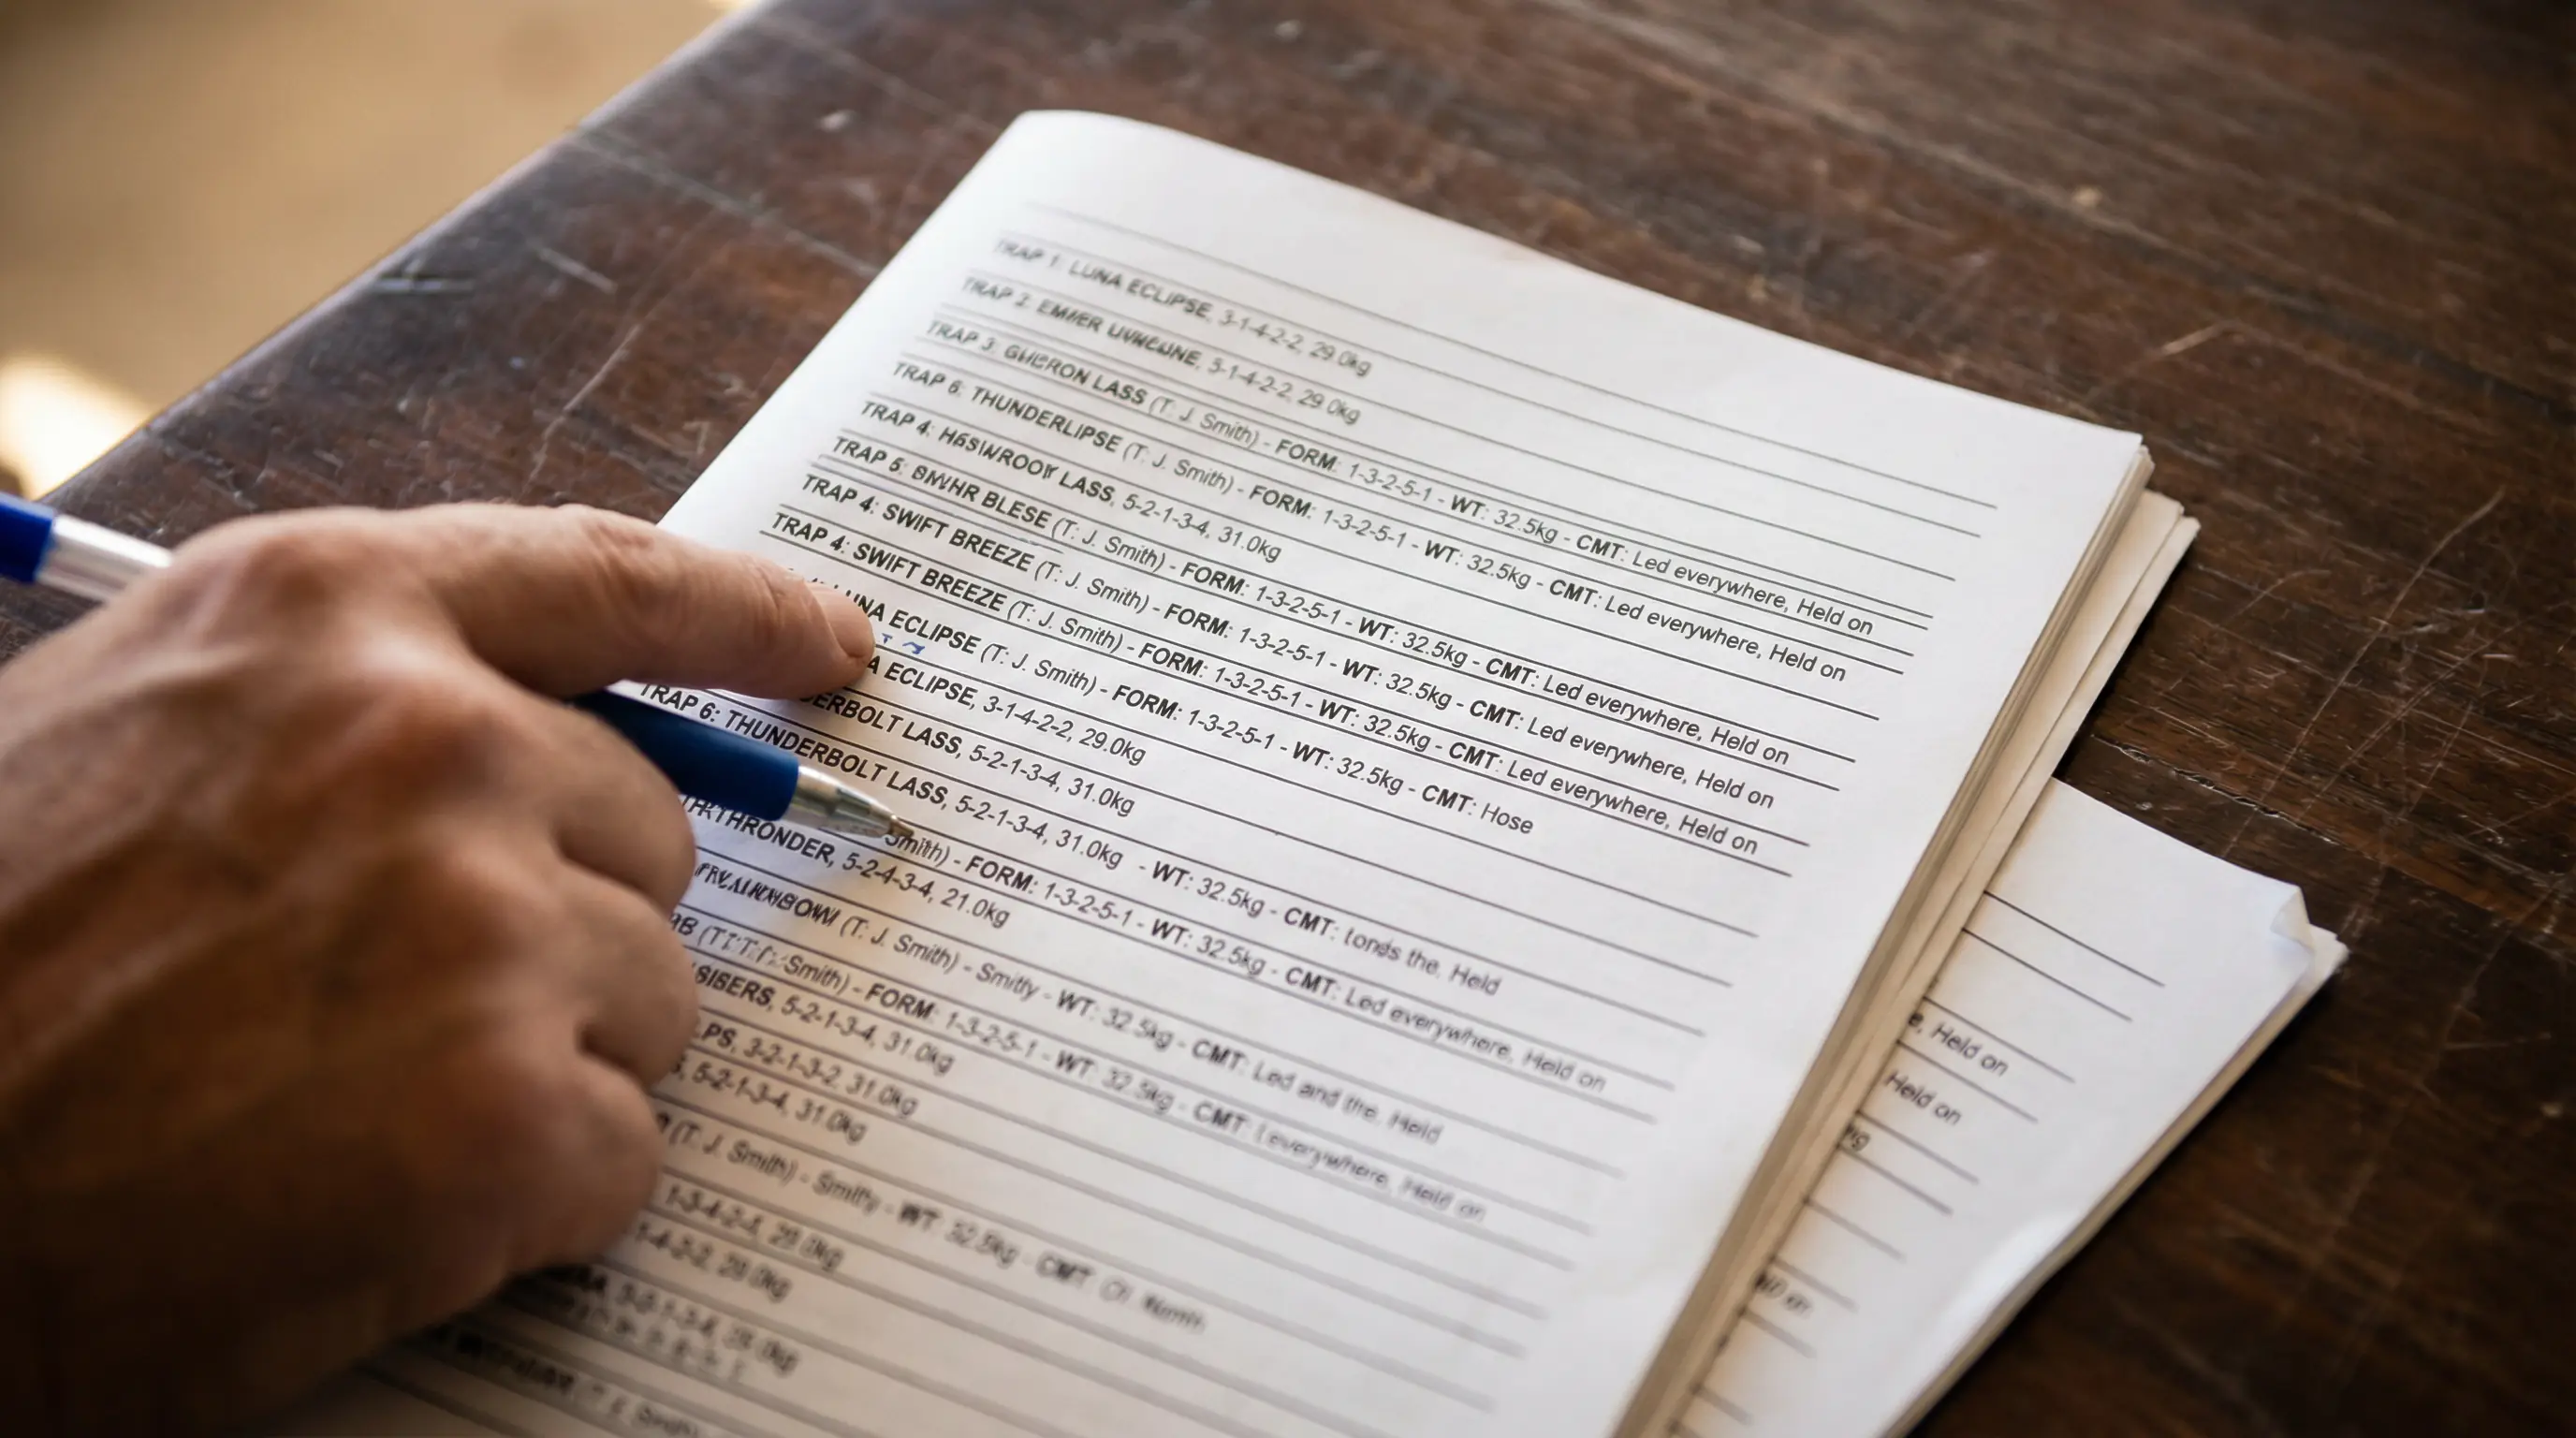 TRAP 1: LUNA ECLIPSE, 3-1-4-2-2, 29.0kg
TRAP 2: 3-1-4-2-2, 29.0kg
TRAP 3: LASS (T: J. Smith) - FORM: 1-3-2-5-1 - WT: 32.5kg - CMT: Led everywhere, Held on
TRAP 6: THUNDERLIPSE (T: J. Smith) - FORM: 1-3-2-5-1 - WT: 32.5kg - CMT: Led everywhere, Held on
TRAP 4: LASS, 5-2-1-3-4, 31.0kg
TRAP 5: BLESE (T: J. Smith) - FORM: 1-3-2-5-1 - WT: 32.5kg - CMT: Led everywhere, Held on
TRAP 4: SWIFT BREEZE (T: J. Smith) - FORM: 1-3-2-5-1 - WT: 32.5kg - CMT: Led everywhere, Held on
TRAP 4: SWIFT BREEZE (T: J. Smith) - FORM: 1-3-2-5-1 - WT: 32.5kg - CMT: Led everywhere, Held on
LUNA ECLIPSE (T: J. Smith) - FORM: 1-3-2-5-1 - WT: 32.5kg - CMT: Hose
A ECLIPSE, 3-1-4-2-2, 29.0kg
DERBOLT LASS, 5-2-1-3-4, 31.0kg
TRAP 6: THUNDERBOLT LASS, 5-2-1-3-4, 31.0kg - WT: 32.5kg - CMT: the. Held
Smith) - FORM: 1-3-2-5-1 - WT: 32.5kg - CMT: Led everywhere, Held on
THRONDER, 5-2-4-3-4, 21.0kg
(T: J. Smith) - Smitly - WT: 32.5kg - CMT: Led and the. Held
Smith) - FORM: 1-3-2-5-1 - WT: 32.5kg - CMT: Held on
SIBERS, 5-2-1-3-4, 31.0kg
PS, 3-2-1-3-2, 31.0kg
5-2-1-3-4, 31.0kg
(T: J. Smith) - - WT: 32.5kg - CMT:
1-3-4-2-1,
1-4-2-2,
e, Held on
Held on